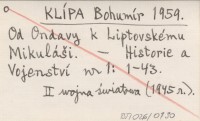 KLÍPA Bohumír 1959.
Od Ondavy k Liptovskému
Mikuláši. — Historie a
Vojenství nr 1: 1-43.
II wojna światowa (1945 r.).